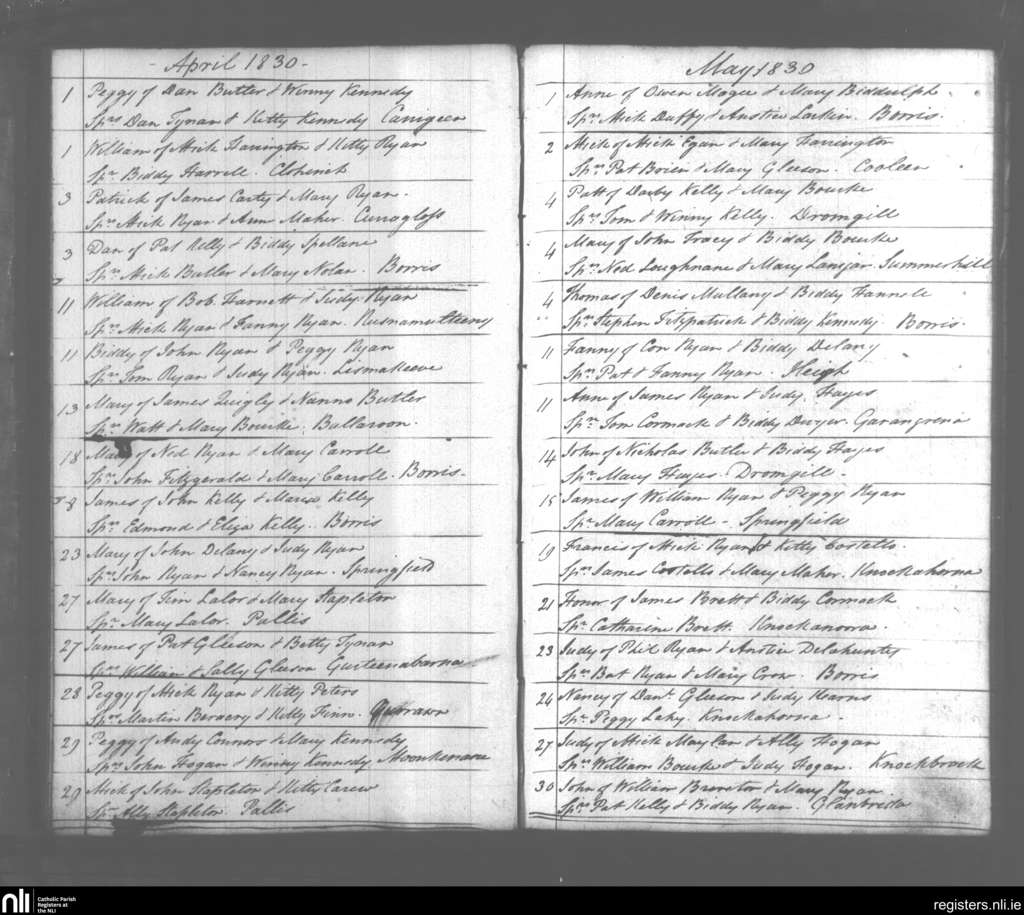 - April 1830 -
1 Peggy of Dan Butler & Winny Kennedy
Sprs Dan Tynan & Kitty Kennedy Canigeen
1 William of Mick Harrington & Kitty Ryan
Spr Biddy Harrell. Clohinch
3 Patrick of James Carty & Mary Ryan.
Sprs Mick Ryan & Ann Maher. Curraglass
3 Dan of Pat Kelly & Biddy Spellane
Sprs Mick Butler & Mary Nolan. Borris
11 William of Bob. Harnett & Judy Ryan
Sprs Mick Ryan & Fanny Ryan.
11 Biddy of John Ryan & Peggy Ryan
Sprs Tom Ryan & Judy Ryan. Lismakeeve
13 Mary of James Quigley & Nanno Butler
Sprs Watt & Mary Bourke. Ballaroon.
18 Mary of Ned Ryan & Mary Carroll
Sprs John Fitzgerald & Mary Carroll. Borris.
8 James of John Kelly & Maria Kelly
Sprs Edmond & Eliza Kelly. Borris
23 Mary of John Delany & Judy Ryan
Sprs John Ryan & Nancy Ryan. Springfield
27 Mary of Tim Lalor & Mary Stapleton
Spr Mary Lalor. Pallis
27 James of Pat Gleeson & Betty Tynan
Sprs William & Sally Gleeson Gurteenabarna
28 Peggy of Mick Ryan & Kitty Peters
Sprs Martin & Kitty Finn.
29 Peggy of Andy Connors & Mary Kennedy
Sprs John Hogan & Winny Kennedy
29 Mick of John Stapleton & Kitty Carew
Spr Ally Stapleton. Pallis
May 1830
1 Anne of Owen Magee & Mary Biddulph
Sprs Mick Duffy & Anstice Larkin. Borris.
2 Mick of Mick Egan & Mary Harrington
Sprs Pat Brien & Mary Gleeson. Cooleen
4 Patt of Darby Kelly & Mary Bourke
Sprs Tom & Winny Kelly. Dromgill
4 Mary of John Tracy & Biddy Bourke
Sprs Ned Loughnane & Mary Summerhill
4 Thomas of Denis Mullany & Biddy Fannell
Sprs Stephen Fitzpatrick & Biddy Kennedy. Borris.
11 Fanny of Con Ryan & Biddy Delany
Sprs Pat & Fanny Ryan. Fleigh
11 Anne of James Ryan & Judy Hayes
Sprs Tom Cormack & Biddy Dwyer. Garangrena
14 John of Nicholas Butler & Biddy Hayes
Spr Mary Hayes. Dromgill.
15 James of William Ryan & Peggy Ryan
Spr Mary Carroll - Springfield
19 Francis of Mick Ryan & Kitty Costello.
Sprs James Costello & Mary Maher. Knockahorna
21 Honor of James Brett & Biddy Cormack
Spr Catharine Brett. Knockanorra.
23 Judy of Phil Ryan & Anstice Delahunty
Sprs Bat Ryan & Mary Crow. Borris
24 Nancy of Danl. Gleeson & Judy Kearns
Spr Peggy Lahy. Knockahorna.
27 Judy of Mick & Ally Hogan
Sprs William Bourke & Judy Hogan. Knockbrack
30 John of William Brereton & Mary Ryan.
Sprs Pat Kelly & Biddy Ryan. Glanbreda
nli
Catholic Parish
Registers at
the NLI
registers.nli.ie